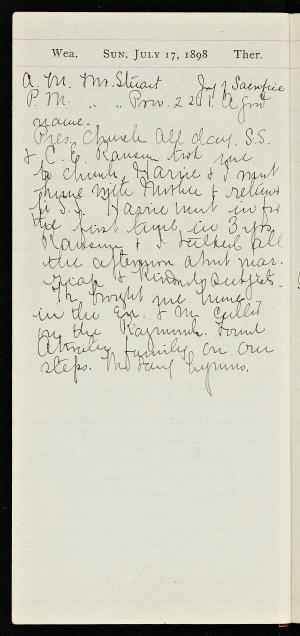 Wea. SUN. JULY 17, 1898 Ther.
A. M. Mr. Stuart Joy of Sacrifice
P. M. " " Prov. 22:1. A good
name.
Pres. Church all day. S.S.
& C. E. Ransom took me
to church, Harrie & I went
home with Mother & returned
to S.S. Harrie went in for
the first time in 3 yrs.
Ransom & I talked all
the afternoon about mar-
riage & kindred subjects.
brought me home
in the Eve. & M.
on the Raymond. Found
family on our
steps. hymns.